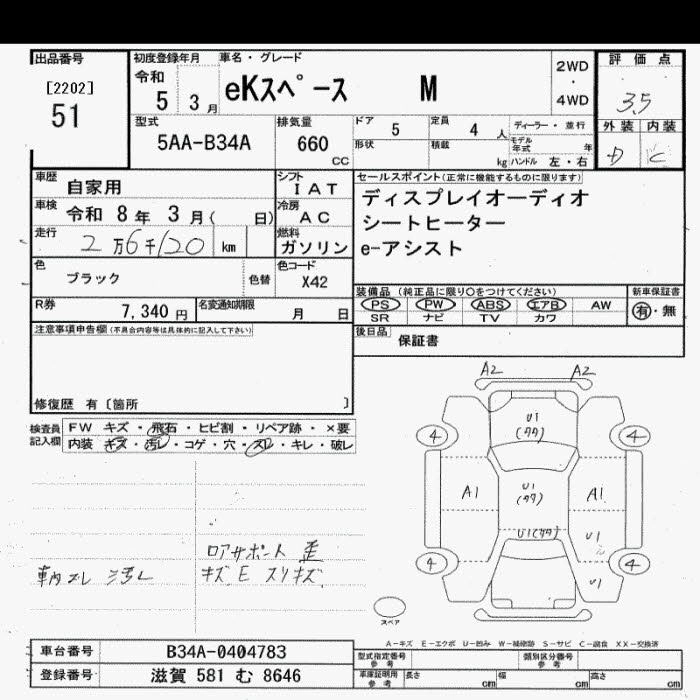 出品番号
[2202]
51
初度登録年月
令和
5 3月
車名・グレード
eKスペース M
2WD
・
4WD
評価点
3.5
外装 内装
D C
型式
5AA-B34A
排気量
660
CC
ドア 5
定員 4 人
ディーラー・並行
形状
積載 kg
モデル年式 年
ハンドル 左・右
車歴
自家用
シフト
IAT
車検
令和 8年 3月( 日)
冷房
AC
走行
2万6千120 km
燃料
ガソリン
色
ブラック
色替
色コード
X42
R券
7,340円
名変通知期限
月 日
セールスポイント(正常に機能するものに限ります)
ディスプレイオーディオ
シートヒーター
e-アシスト
装備品(純正品に限り○をつけてください)
新車保証書
PS PW ABS エアB AW
SR ナビ TV カワ
有・無
後日品
保証書
注意事項申告欄(不具合内容等は具体的に記入して下さい)
修復歴 有〔箇所 〕
検査員
記入欄
FW キズ・飛石・ヒビ割・リペア跡・×要
内装 キズ・汚レ・コゲ・穴・スレ・キレ・破レ
ロアサポート 歪
車内スレ 汚レ
キズ E スリキズ
A2 A2
U1
(タタ)
4 4
A1
U1
(タタ)
A1
U1(タタ)
U1
4 4
U1
スペア
A-キズ E-エクボ U-凹み W-補修跡 S-サビ C-腐食 XX-交換済
車台番号
B34A-0404783
登録番号
滋賀 581 む 8646
型式指定番号
参考
類別区分番号
参考
車庫証明用
参考
長さ cm
幅 cm
高さ cm